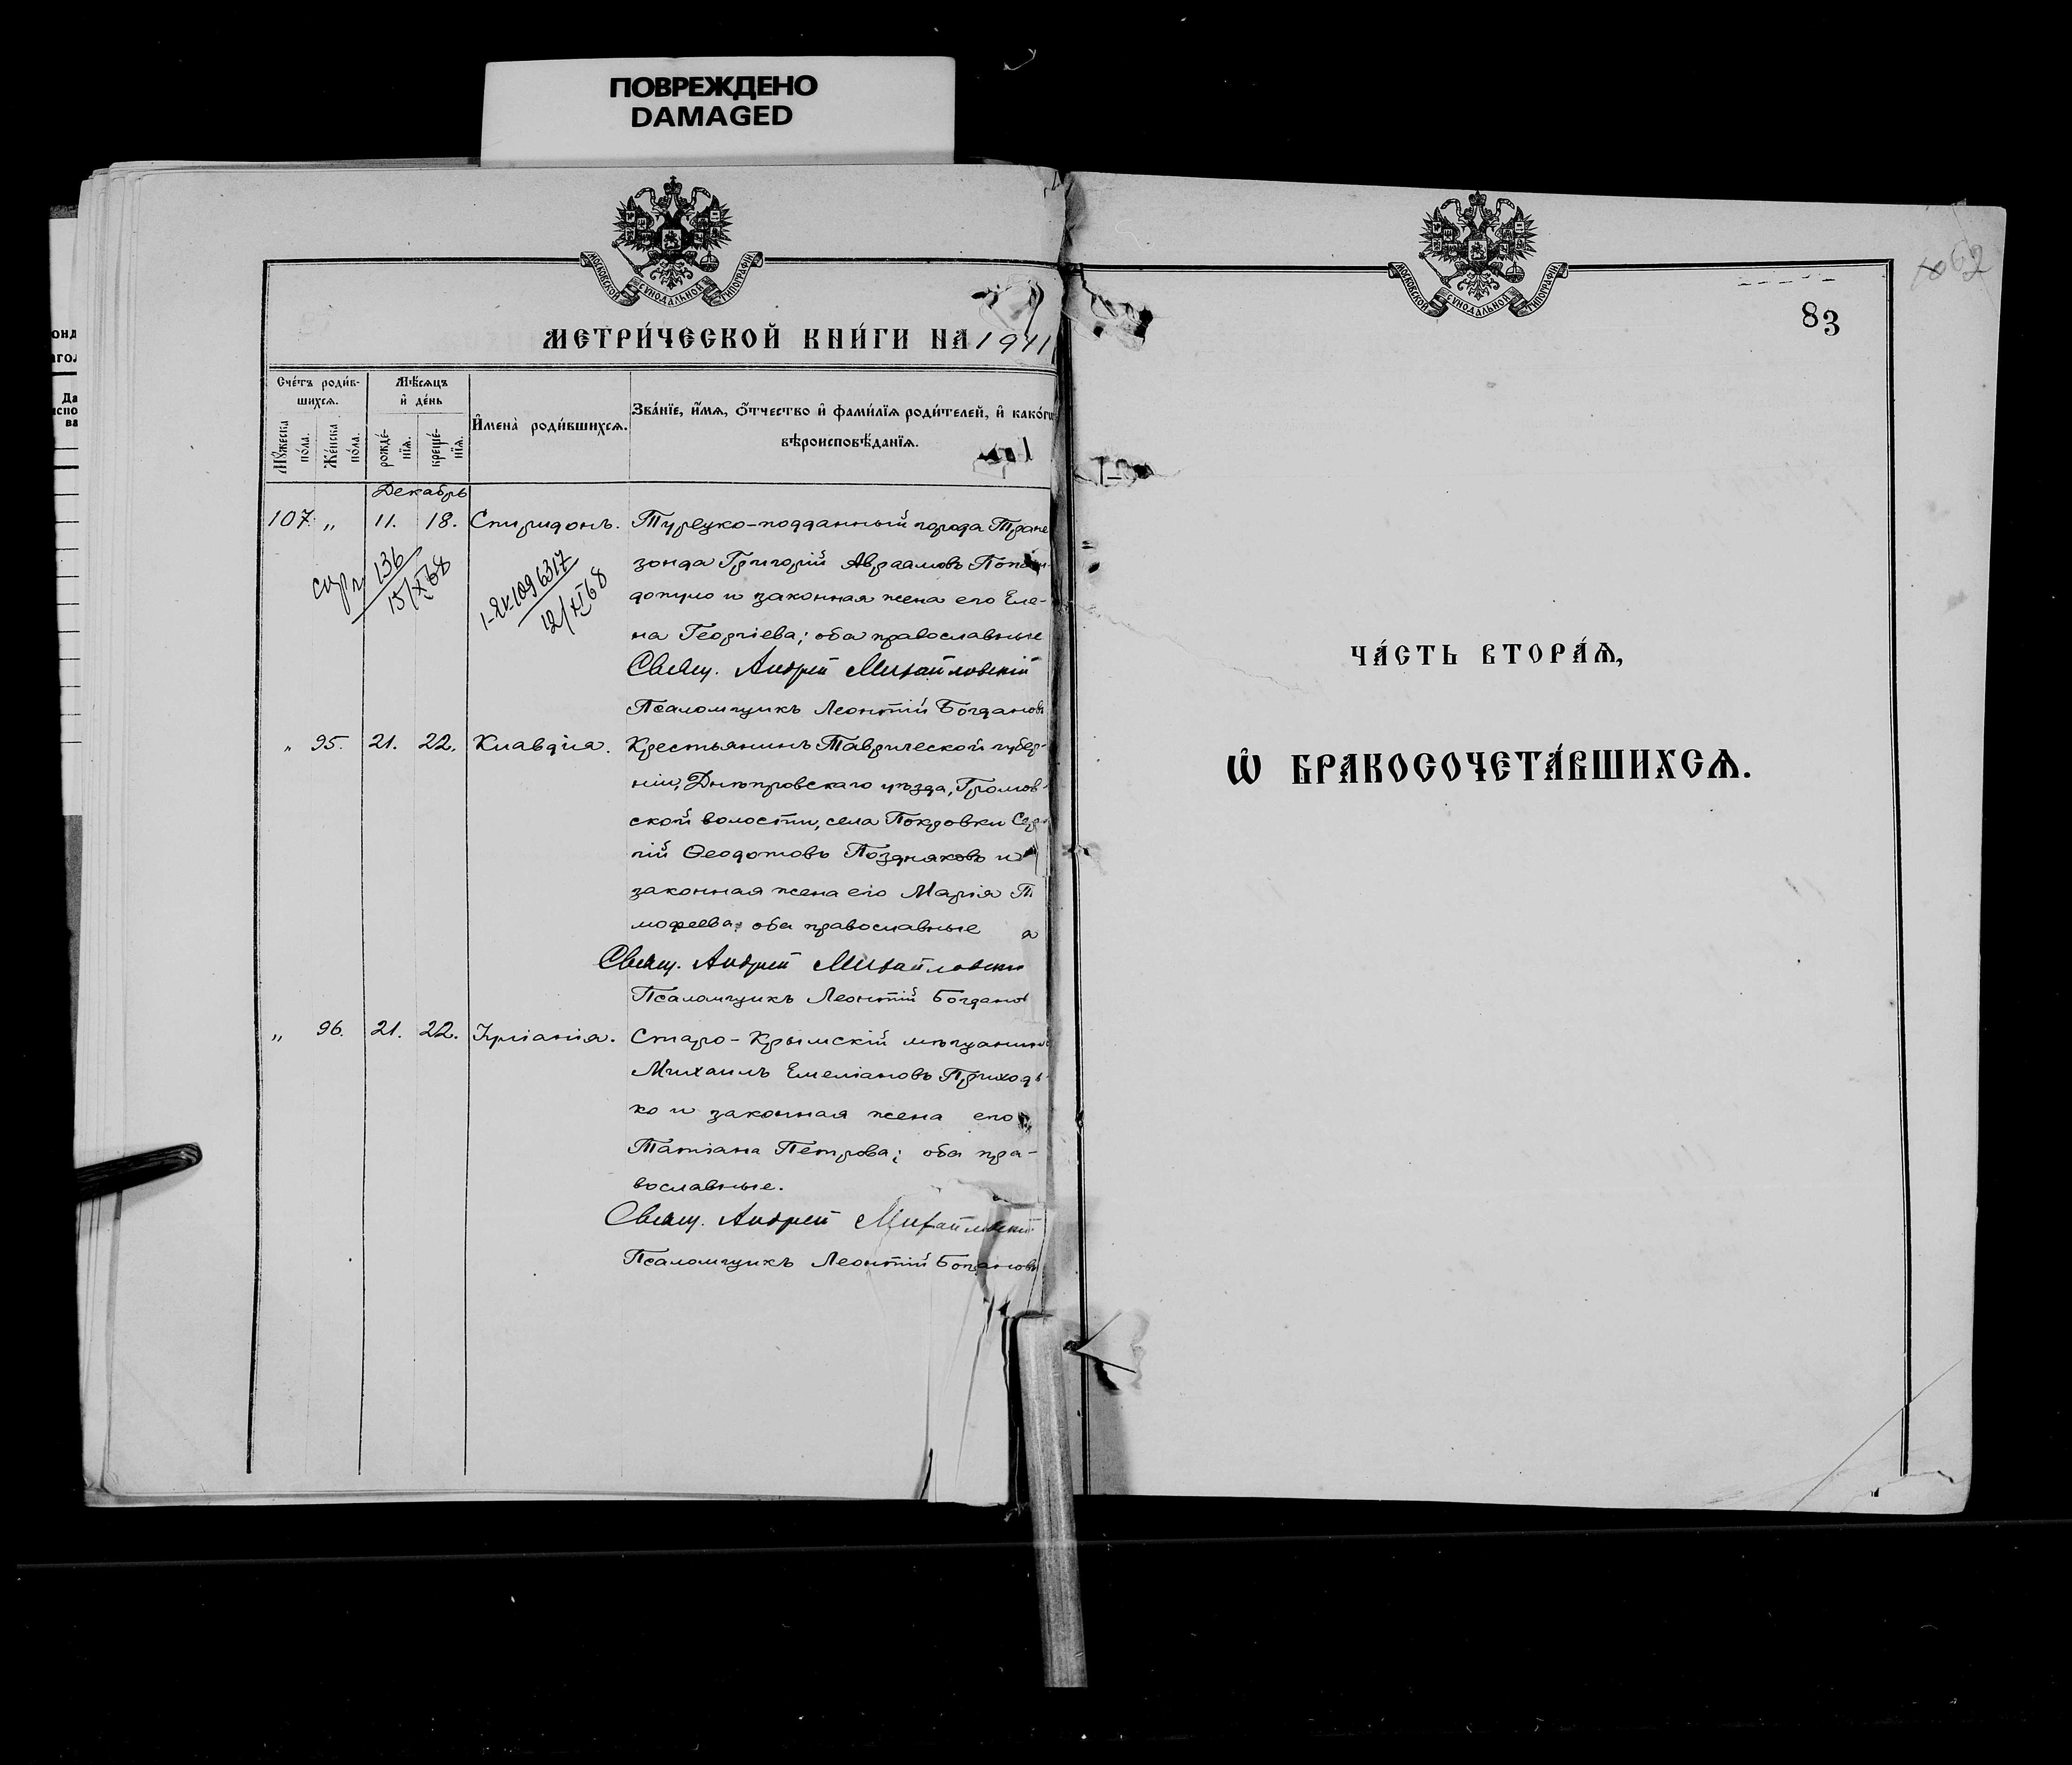 ПОВРЕЖДЕНО
DAMAGED
МОСКОВСКОЙ СѴНОДАЛЬНОЙ ТИПОГРАФІИ
МЕТРИ́ЧЕСКОЙ КНИ́ГИ НА 1911
Сче́тъ роди́в-
шихсѧ.
Мꙋ́жеска
по́ла.
Же́нска
по́ла.
Мѣ́сѧцъ
и҆ де́нь
рожде́-
нїѧ.
креще́-
нїѧ.
И҆мена̀ роди́вшихсѧ.
Зва́нїе, и҆́мѧ, ѻ҆́тчество и҆ фами́лїѧ роди́телей, и҆ како́гѡ
вѣроисповѣ́данїѧ.
Декабрь
107 „ 11. 18. Спиридонъ. Турецко-подданный города Трапе
зонда Григорій Авраамовъ Попан-
допуло и законная жена его Еле-
на Георгіева; оба православные
Свящ. Андрей Михайловскій
Псаломщикъ Леонтій Богдановъ
136
15/XI 68
1-ЯК 1096317
12/XI 68
„ 95. 21. 22. Клавдія. Крестьянинъ Таврической губер-
ніи, Днѣпровскаго уѣзда, Громов-
ской волости, села Покровки Сер-
гій Ѳеодотовъ Поздняковъ и
законная жена его Марія Ти
мофеева; оба православные
Свящ. Андрей Михайловскій
Псаломщикъ Леонтій Богданов
„ 96. 21. 22. Іуліанія. Старо-Крымскій мѣщанинъ
Михаилъ Емеліановъ Приходь-
ко и законная жена его
Татіана Петрова; оба пра-
вославные.
Свящ. Андрей Михайловскій
Псаломщикъ Леонтій Богдановъ
МОСКОВСКОЙ СѴНОДАЛЬНОЙ ТИПОГРАФІИ
62
83
ЧА́СТЬ ВТОРА́Ѧ,
Ѡ҆ БРАКОСОЧЕТА́ВШИХСѦ.